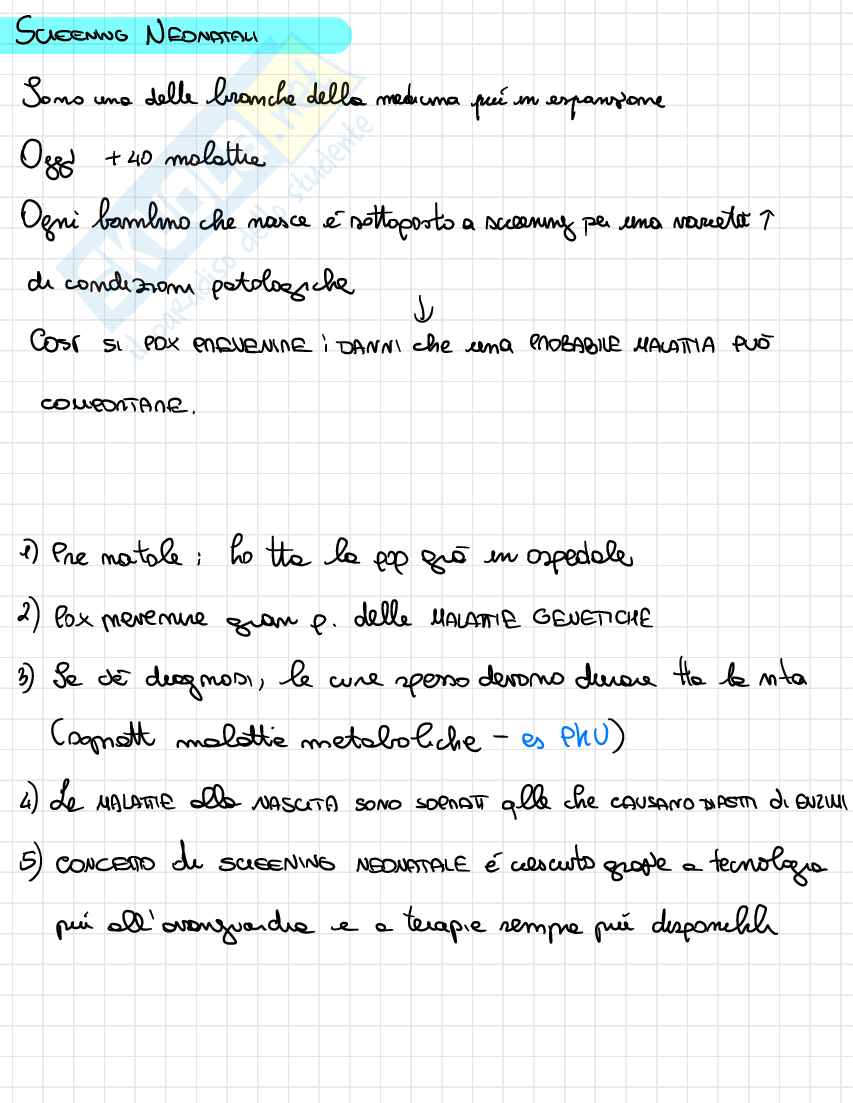 SCREENING NEONATALI
Sono una delle branche della medicina più in espansione
Oggi +40 malattie
Ogni bambino che nasce é sottoposto a screening per una varietà ↑
di condizioni patologiche
↓
Così si POX PREVENIRE i DANNI che una PROBABILE MALATTIA PUÒ
COMPORTARE.
1) Pre natale; ho tta la pop già in ospedale
2) Pox prevenire gran p. delle MALATTIE GENETICHE
3) Se c'è diagnosi, le cure spesso devono durare tta la vita
(sopratt malattie metaboliche - es PKU)
4) Le MALATTIE alla NASCITA SONO SOPRATT qlle che CAUSANO di ENZIMI
5) CONCETTO di SCREENING NEONATALE é cresciuto grazie a tecnologia
più all'avanguardia e a terapie sempre più disponibili
SKUOLA.net
il paradiso dello studente